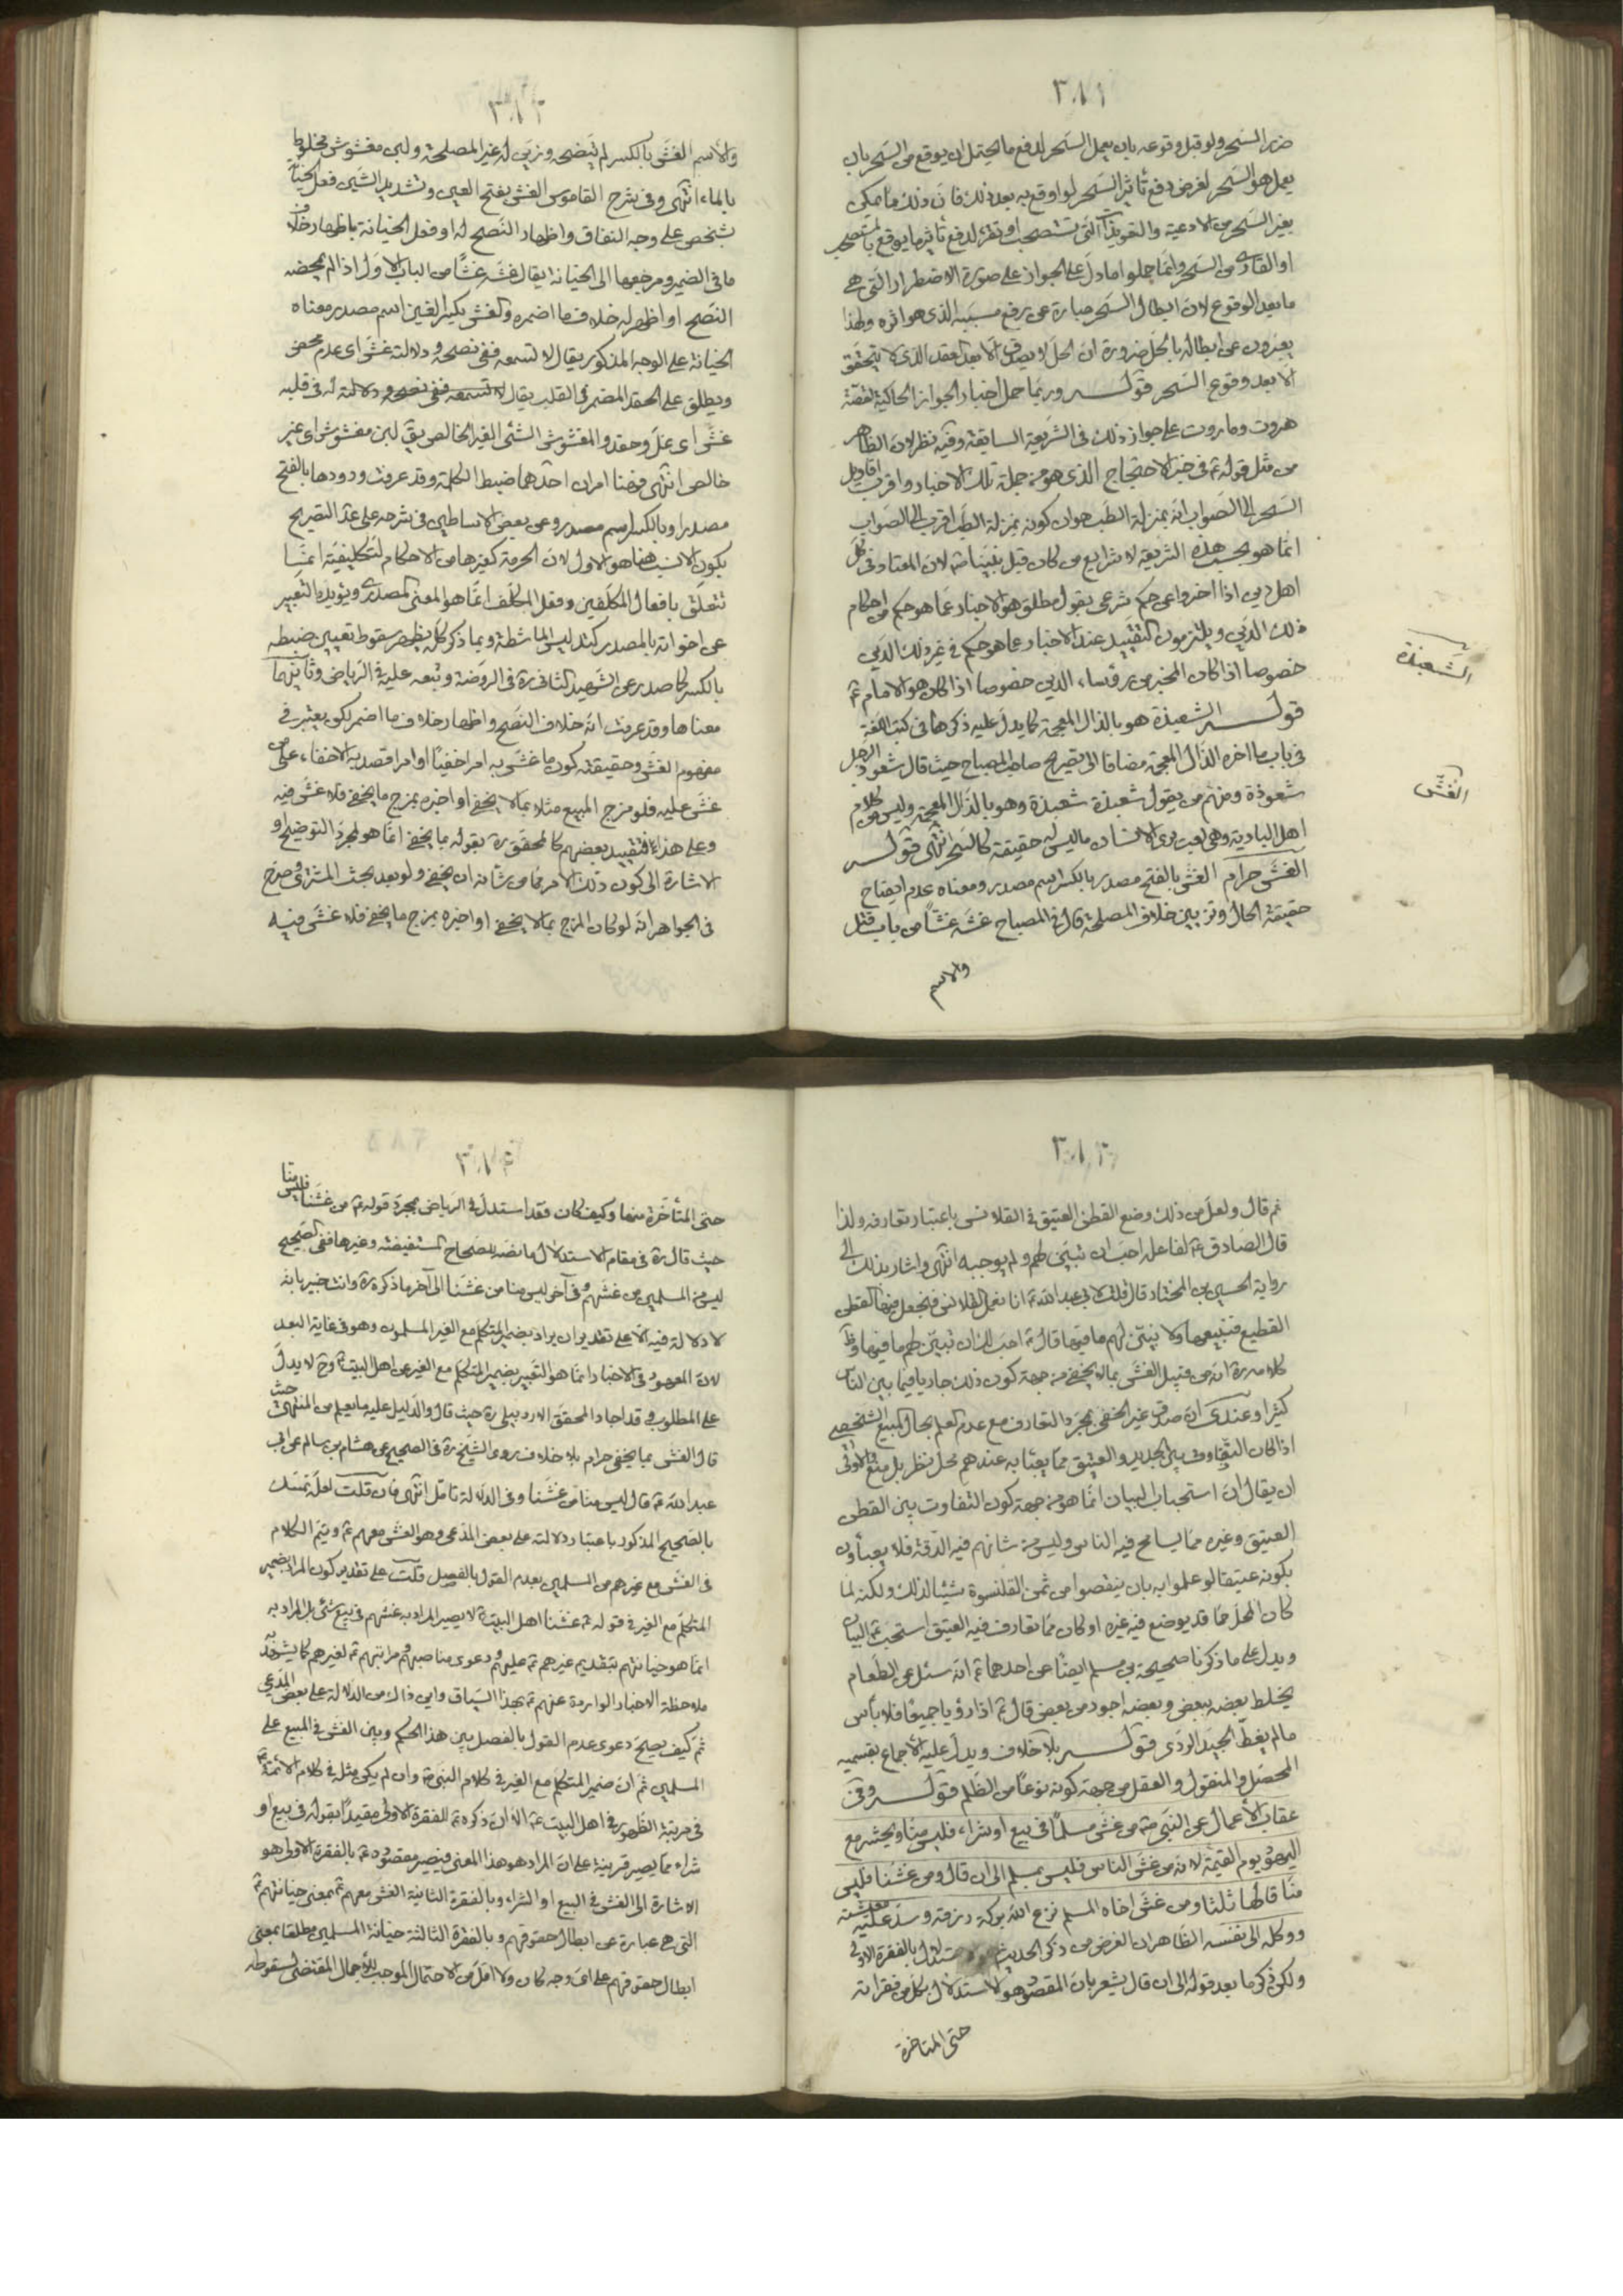 ٣٨١
ضرر السّحر ولو قبل وقوعه بان يعمل السّحر لدفع ما يحتمل ان يوقع من السّحر بان
يعمل هو السّحر لغرض دفع تأثير السّحر لو اوقع به بعد ذلك فانّ ذلك ممّا يمكن
بغير السّحر من الادعية والتعويذات التى تستصحب او تقرء لدفع تأثير ما يوقع بالمستصحب
او القارى من السّحر وانّما حملوا ما دلّ على الجواز على صورة الاضطرار التى هى
ما بعد الوقوع لانّ ابطال السّحر عبارة عن رفع مسبّبه الذى هو اثره ولهذا
يعبّرون عن ابطاله بالحلّ ضرورة انّ الحلّ لا يصدق الّا بعد العقد الذى لا يتحقّق
الا بعد وقوع السّحر قوله وربّما حمل اخبار الجواز الحاكية لقصّة
هروت وماروت على جواز ذلك فى الشريعة السابقة وفيه نظر لانّ الظاهر
من مثل قوله ع فى خبر الاحتجاج الذى هو من جملة تلك الاخبار واقرب اقاويل
السّحر الى الصّواب انّه بمنزلة الطبّ هو ان كونه بمنزلة الطبّ اقرب الى الصّواب
انّما هو بحسب هذه الشريعة لا شرايع من كان قبل نبيّنا ص لانّ المعتاد فى كلّ
اهل دين اذا اخبروا عن حكم شرعى بقول مطلق هو الاخبار عمّا هو حكم من احكام
ذلك الدّين ويلتزمون التقييد عند الاخبار عما هو حكم فى غير ذلك الدّين
خصوصا اذا كان المخبر من رؤساء الدين خصوصا اذا كان هو الامام ع
قوله الشعبذة هو بالذال المعجمة كما يدلّ عليه ذكرها فى كتب اللغة
فى باب ما اخره الذّال المعجمة مضافا الى تصريح صاحب المصباح حيث قال شعوذ الرجل
شعوذة ومنهم من يقول شعبذة شعبذة وهو بالذّال المعجمة وليس من كلام
اهل البادية وهى لعب يرى الانسان ما ليس له حقيقة كالسّحر انتهى قوله
الغشّ حرام الغشّ بالفتح مصدر بالكسر اسم مصدر ومعناه عدم ايضاح
حقيقة الحال وتزيين خلاف المصلحة قال فى المصباح غشّه غشّاً من باب قتل
والاسم
الشّعبذة
الغشّ
٣٨٢
والاسم الغشّ بالكسر لم ينصحه وزيّن له غير المصلحة ولبن مغشوش مخلوط
بالماء انتهى وفى شرح القاموس الغشّ بفتح الغين وتشديد الشّين فعل الخيانة
بشخص على وجه النفاق واظهار النّصح له او فعل الخيانة باظهار خلاف
ما فى الضمير ومرجعها الى الخيانة يقال غشّه غشّاً من الباب الاوّل اذا لم يمحضه
النّصح او اظهر له خلاف ما اضمره والغشّ بكسر الغين اسم مصدر معناه
الخيانة على الوجه المذكور يقال لا تسمعه ففى نصحه ودلالته غشّ اى عدم محض
ويطلق على الحقد المضمر فى القلب يقال لا تسمعه ففى نصحه ودلالته له فى قلبه
غشّ اى غلّ وحقد والمغشوش الشّئ الغير الخالص يقال لبن مغشوش اى غير
خالص انتهى فهنا امران احدهما ضبط الكلمة وقد عرفت ورودها بالفتح
مصدرا وبالكسر اسم مصدر وعن بعض الاساطين فى شرحه على عدّ التصريح
بكون الانسب هنا هو الاوّل لانّ الحرمة كغيرها من الاحكام التكليفيّة انّما
تتعلّق بافعال المكلّفين وفعل المكلّف انّما هو المعنى المصدرى ويؤيده التعبير
عن اخواته بالمصدر كتدليس الماشطة وبما ذكر كلّه يظهر سقوط تعيين ضبطه
بالكسر كما صدر عن الشّهيد الثانى ره فى الرّوضة وتبعه عليه فى الرّياض وثانيهما
معناها وقد عرفت انّه خلاف النّصح واظهار خلاف ما اضمر لكن يعتبر فى
مفهوم الغشّ وحقيقته كون ما غشّ به امرا خفيّا او امرا قصد به الاخفاء على من
غشّ عليه فلو مزج المبيع مثلا بما لا يخفى او اخبره بمزج ما يخفى فلا غشّ فيه
وعلى هذا فتقييد بعضهم كالمحقّق ره بقوله بما يخفى انّما هو لمجرّد التوضيح او
الاشارة الى كون ذلك الامر ممّا من شأنه ان يخفى ولو بعد بحث المشترى وصرّح
فى الجواهر انّه لو كان المزج بما لا يخفى او اخبره بمزج ما يخفى فلا غشّ فيه
٣٨٣
ثم قال ولعلّ من ذلك وضع القطن العتيق فى القلانس باعتبار تعارفه ولذا
قال الصّادق ع لفاعله احبّ ان تبيّن لهم ولم يوجبه انتهى واشار بذلك الى
رواية الحسين بن المختار قال قلت لابى عبد الله ع انا نعمل القلانس فنجعل فيها القطن
القطيع فنبيعها ولا نبيّن لهم ما فيها قال ع احبّ لك ان تبيّن لهم ما فيها وظ
كلامه ره انّه من قبيل الغشّ بما لا يخفى من جهة كون ذلك جاريا فيما بين الناس
كثيرا وعندى انّ صدق غير الخفى بمجرّد التعارف مع عدم العلم بحال المبيع الشخصى
اذا كان التفاوت بين الجديد والعتيق ممّا يعبأ به عندهم محلّ نظر بل منع فالاولى
ان يقال انّ استحباب البيان انّما هو من جهة كون التفاوت بين القطن
العتيق وغيره ممّا يسامح فيه الناس وليس من شأنهم فيه الدّقة فلا يعبأون
بكونه عتيقا لو علموا به بان ينقصوا من ثمن القلنسوة شيئا لذلك ولكنه لمّا
كان المحلّ ممّا قد يوضع فيه غيره او كان ممّا تعارف فيه العتيق استحبّ ع البيان
ويدل على ما ذكرنا صحيحة بن مسلم ايضًا عن احدهما ع انّه سئل عن الطّعام
يخلط بعضه ببعض وبعضه اجود من بعض قال ع اذا رؤيا جميعًا فلا بأس
ما لم يغطّ الجيّد الردى قوله بلا خلاف ويدلّ عليه الاجماع بقسميه
المحصّل والمنقول والعقل من جهة كونه نوعًا من الظّلم قوله وفى
عقاب الأعمال عن النّبى ص من غشّ مسلماً فى بيع او شراء فليس منّا ويحشر مع
اليهود يوم القيمة لانه من غشّ الناس فليس بمسلم الى ان قال ومن غشّنا فليس
منّا قالها ثلثا ومن غشّ اخاه المسلم نزع الله بركة رزقه وسدّ عليه معيشته
ووكله الى نفسه الظّاهر ان الغرض من ذكر الحديث هو الاستدلال بالفقرة الاولى
ولكن ذكر ما بعد قوله الى ان قال يشعر بانّ المقصود هو الاستدلال بكلّ من فقراته
حتى المتاخرة
٣٨٤
حتى المتأخّرة منها وكيف كان فقد استدلّ فى الرّياض بمجرّد قوله ع من غشّنا فليس منّا
حيث قال ره فى مقام الاستدلال ما نصّه للصّحاح المستفيضة وغيرها ففى الصّحيح
ليس من المسلمين من غشّهم وفى آخر ليس منا من غشّنا الى آخر ما ذكره ره وانت خبير بانه
لا دلالة فيه الّا على تقدير ان يراد بضمير المتكلّم مع الغير المسلمون وهو فى غاية البعد
لانّ المعهود فى الاخبار انّما هو التّعبير بضمير المتكلّم مع الغير عن اهل البيت ع وح لا يدلّ
على المطلوب وقد اجاد المحقّق الاردبيلى ره حيث قال والدّليل عليه ما يعلم من المنتهى حيث
قال الغشّ بما يخفى حرام بلا خلاف روى الشّيخ ره فى الصحيح عن هشام بن سالم عن ابى
عبد الله ع قال ليس منا من غشّنا وفى الدلالة تامّل انتهى فان قلت لعلّه تمسّك
بالصّحيح المذكور باعتبار دلالته على بعض المدّعى وهو الغشّ معهم ع ويتمّ الكلام
فى الغشّ مع غيرهم من المسلمين بعدم القول بالفصل قلت على تقدير كون المراد بضمير
المتكلّم مع الغير فى قوله ع غشّنا اهل البيت ع لا يصير المراد به غشّهم فى بيع شئ بل المراد به
انّما هو خيانتهم بتقديم غيرهم ع عليهم ودعوى مناصبهم ومراتبهم ع لغيرهم كما يشهد به
ملاحظة الاخبار الواردة عنهم ع بهذا السّياق واين ذلك من الدلالة على بعض المدّعى
ثمّ كيف يصحّ دعوى عدم القول بالفصل بين هذا الحكم وبين الغشّ فى المبيع على
المسلمين ثمّ انّ ضمير المتكلّم مع الغير فى كلام النبى ص وان لم يكن مثله فى كلام الأئمّة ع
فى مرتبة الظّهور فى اهل البيت ع الّا انّ ذكره ص للفقرة الاولى مقيّداً بقوله فى بيع او
شراء ممّا يصير قرينة على انّ المراد هو هذا المعنى فيصير مقصوده ص بالفقرة الاولى هو
الاشارة الى الغشّ فى البيع او الشراء وبالفقرة الثانية الغشّ معهم ع بمعنى خيانتهم ع
التى هى عبارة عن ابطال حقوقهم وبالفقرة الثالثة خيانة المسلمين مطلقا بمعنى
ابطال حقوقهم على اىّ وجه كان ولا اقلّ من الاحتمال الموجب للأجمال المقتضى لسقوطه